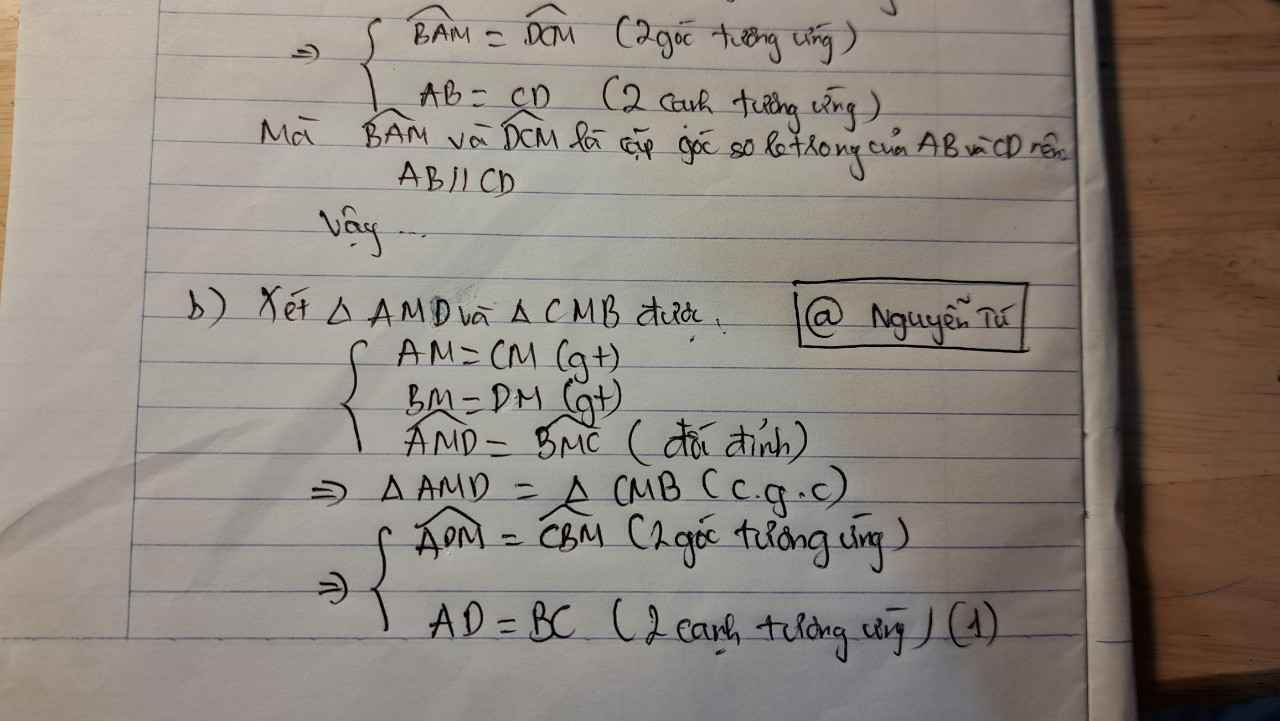 ⇒ { BAM = DCM (2 góc tương ứng)
AB = CD (2 cạnh tương ứng)
Mà BAM và DCM là cặp góc so le trong của AB và CD nên
AB // CD
Vậy ...
b) Xét Δ AMD và Δ CMB được:
@ Nguyễn Tú
{ AM = CM (gt)
BM = DM (gt)
AMD = BMC (đối đỉnh)
⇒ Δ AMD = Δ CMB (c.g.c)
⇒ { ADM = CBM (2 góc tương ứng)
AD = BC (2 cạnh tương ứng) (1)